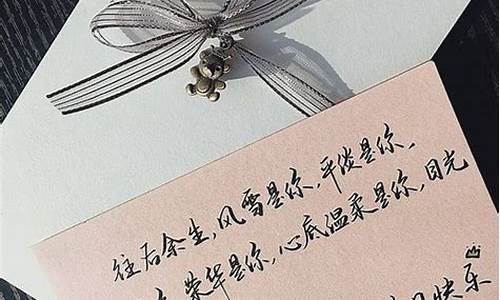 往后余生,风雪是你,平淡是你,
荣华是你,心底温柔是你,目光
快乐